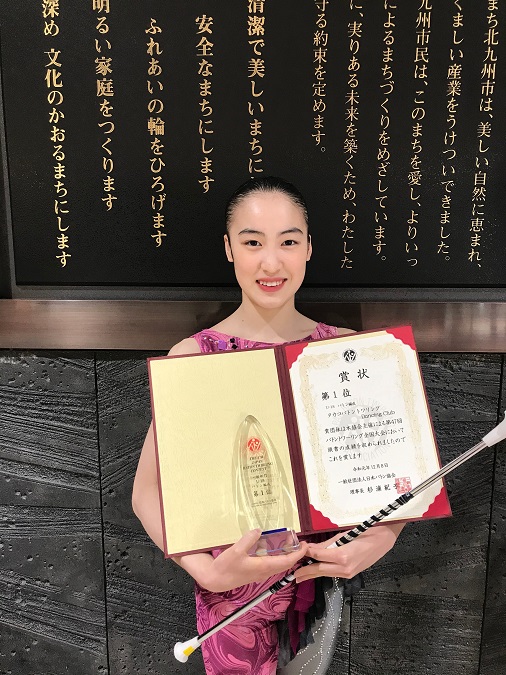 まち北九州市は、美しい自然に恵まれ、
くましい産業をうけついできました。
九州市民は、このまちを愛し、よりいっ
によるまちづくりをめざしています。
に、実りある未来を築くため、わたした
守る約束を定めます。
清潔で美しいまちに
安全なまちにします
ふれあいの輪をひろげます
明るい家庭をつくります
深め 文化のかおるまちにします
賞状
第1位
U-20 バトン編成
バトントワリング
Dancing Club
貴団体は本協会主催による第47回
バトントワーリング全国大会において
頭書の成績を収められましたので
これを賞します
令和元年12月8日
一般社団法人日本バトン協会
理事長 杉浦紀
第1位